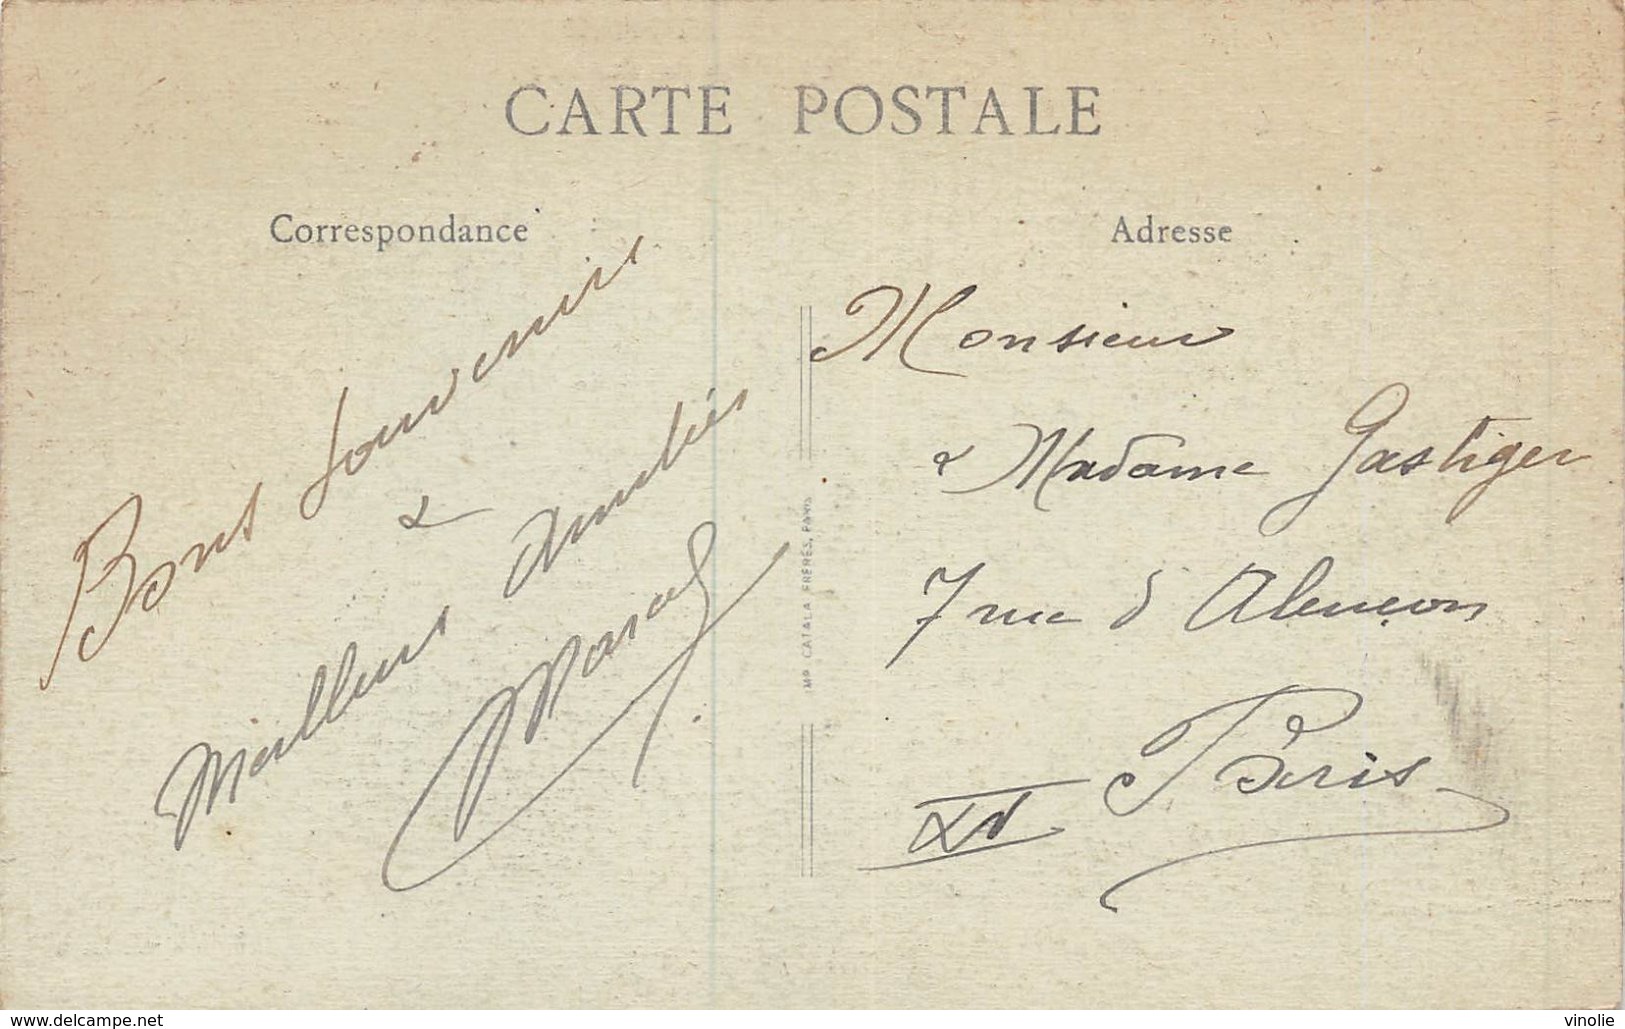 CARTE POSTALE
Correspondance
Bons Souvenirs
&
Meilleurs Amitiés
Adresse
Monsieur
& Madame Gastiger
7 rue d'Alençon
Paris
XV
MP CATALA FRÈRES, PARIS
www.delcampe.net
vinolie